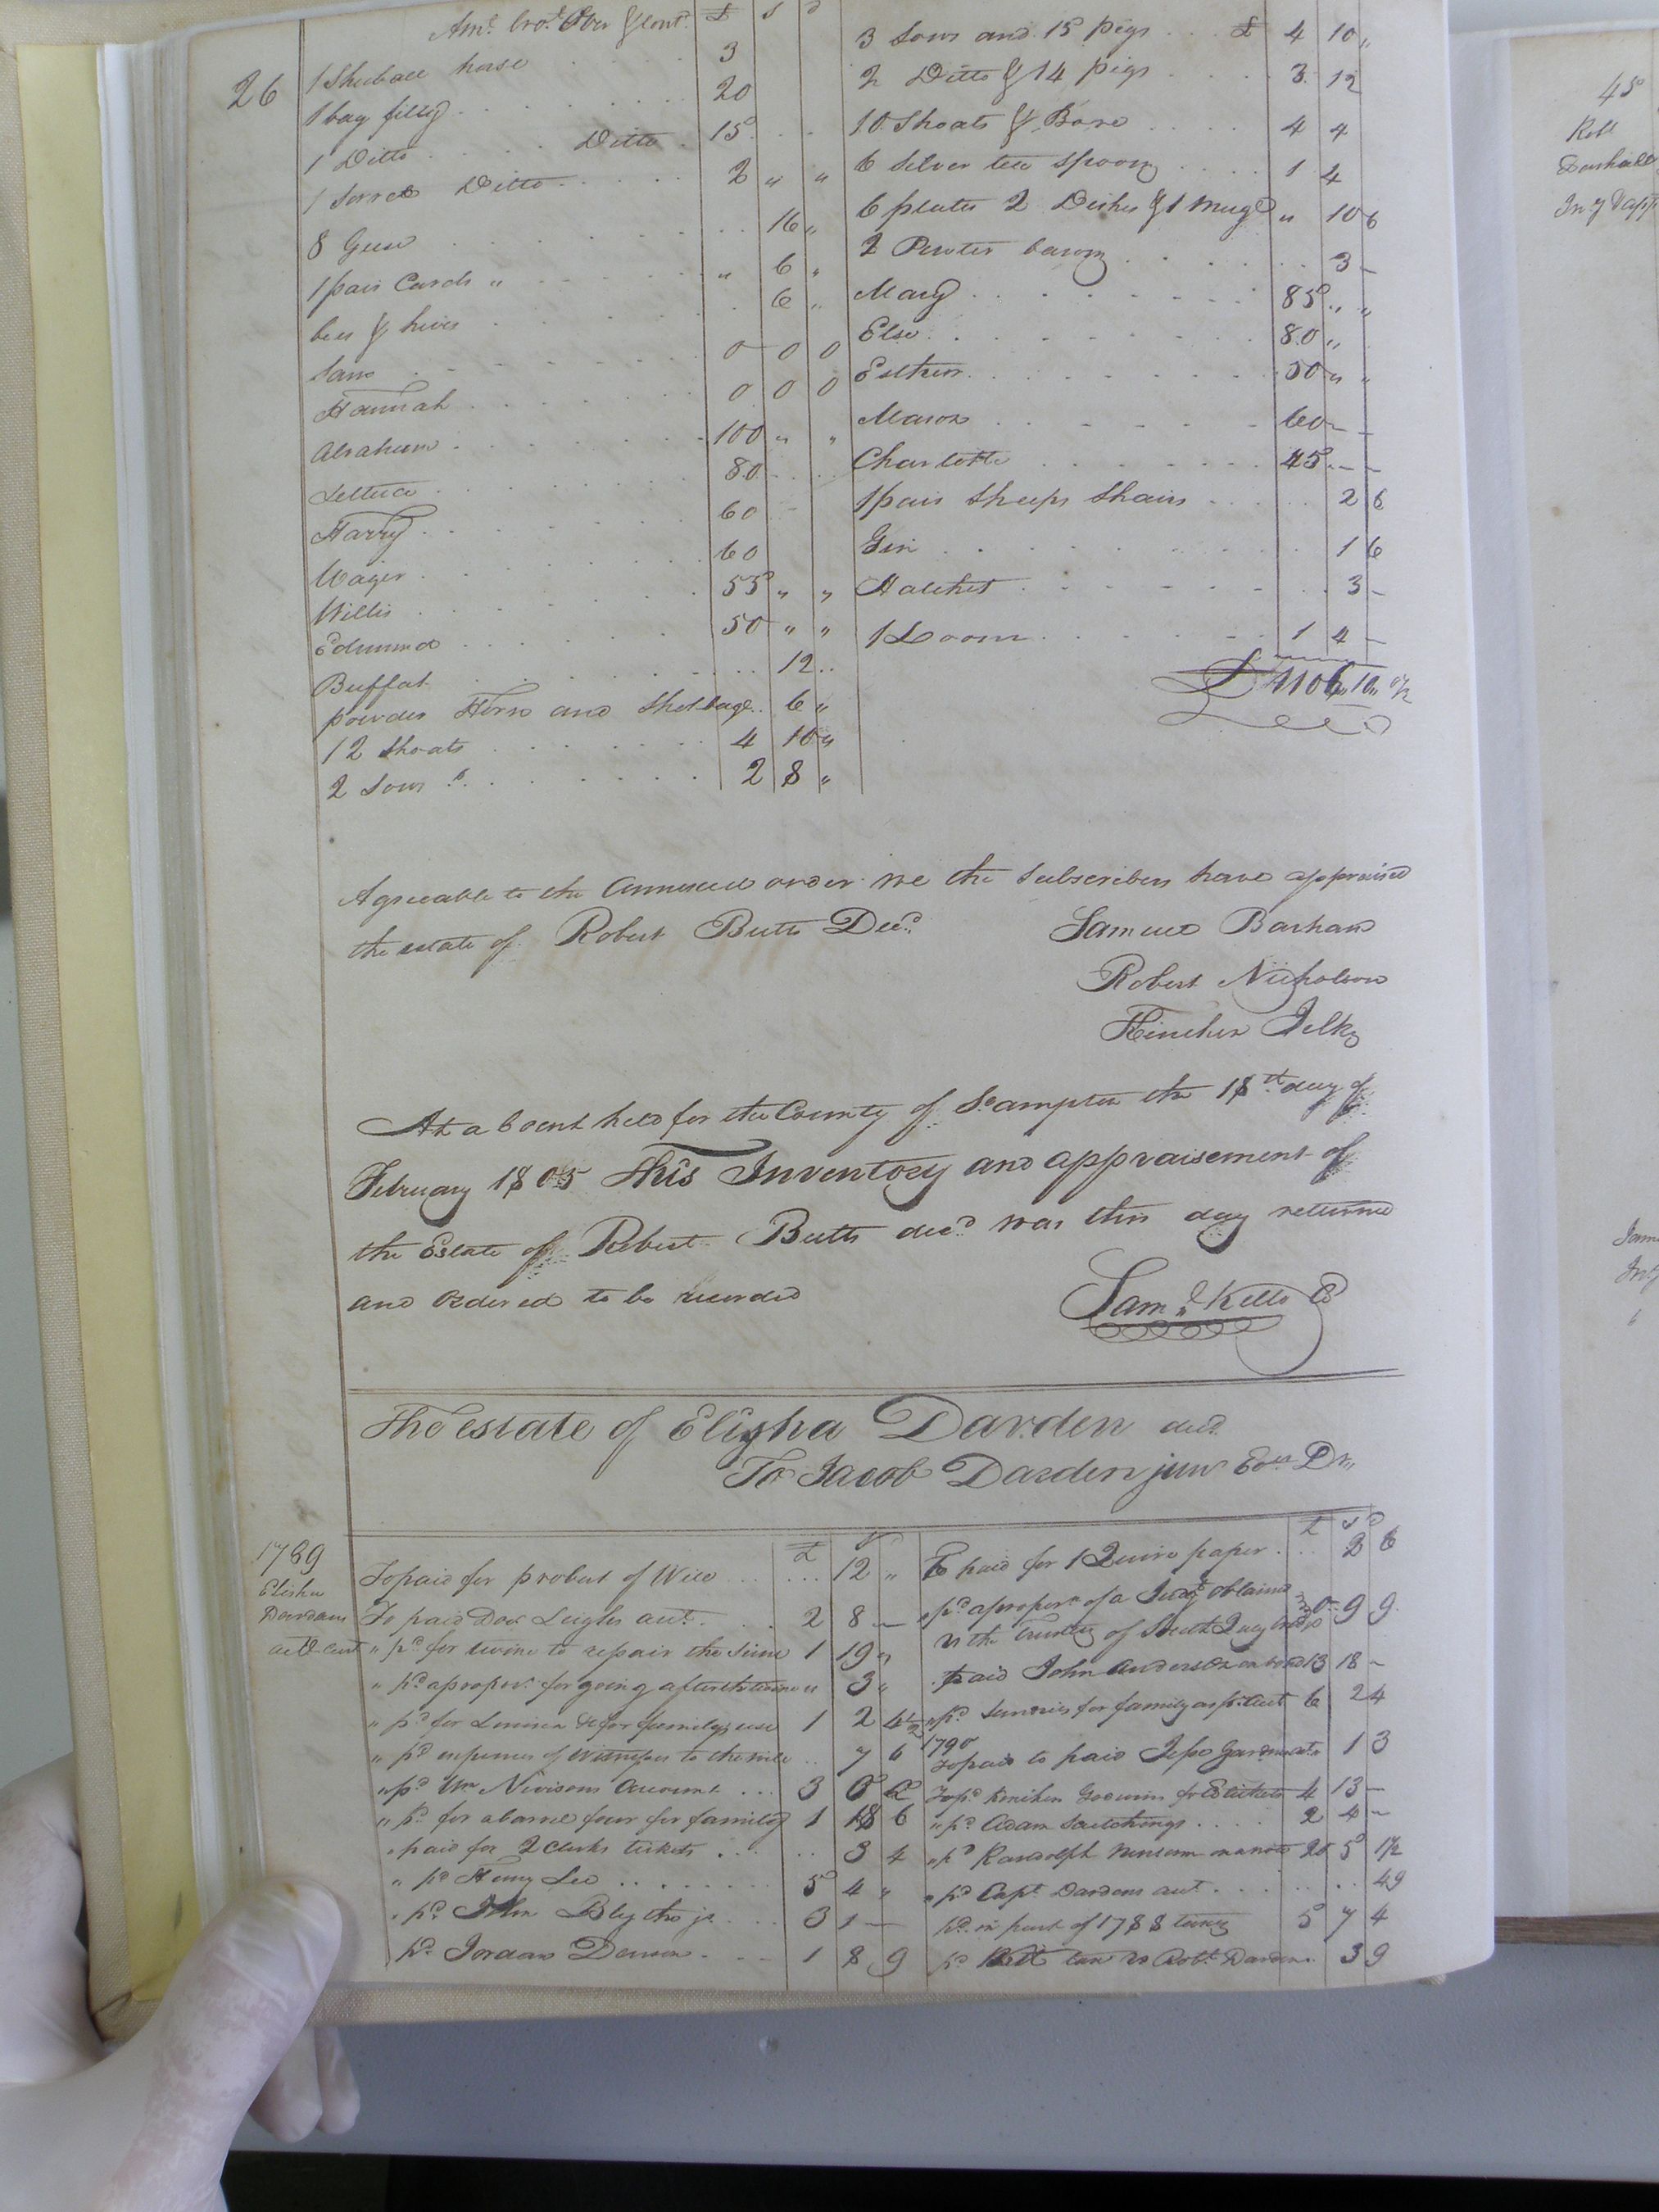 26
Amt. brot. Over & Cont. £ s d
1 Skuball horse 3
1 bay filly 20
1 Ditto Ditto 15
1 Sorrel Ditto 2 " "
8 Geese 16 "
1 pair Cards " " 6 "
bees & hives 6 "
Sam 0 0 0
Hannah 0 0 0
Abraham 100 " "
Lettuce 80
Harry 60
Wager 60
Willis 55 " "
Edmund 50 " "
Buffat 12
powder Horn and Shotbag 6 "
12 Shoats 4 10 "
2 Sows 2 8 "
3 Sows and 15 pigs £ 4 10 "
2 Ditto & 14 pigs 3 12
10 Shoats & Bore 4 4
6 Silver tea spoons 1 4
6 plates 2 Dishes & 1 Mugg " 10 6
2 Pewter basons 3 -
Mary 85 " "
Else 80 "
Esther 50 " "
Mason 60 - -
Charlotte 45 - -
1 pair Sheeps Shairs 2 6
Gin 1 6
Hatchet 3 -
1 Loom 1 4 -
Agreeable to the Annexed order we the Subscribers have appraised
the estate of Robert Butts Decd.
Samuel Barham
Robert Nicholson
Hinchen Jelks
At a Court held for the County of Sampton the 18th. day of
February 1805 This Inventory and appraisement of
the Estate of Robert Butts decd was this day returned
and Ordered to be recorded
Saml Kello C
The estate of Elisha Darden decd
To Jacob Darden junr Exr Dr.
1789
Elisha
Darden
actt Curt
£ s
To paid for probat of Will 12 "
To paid Doc Leighs act. 2 8 -
" pd for twine to repair the Seine 1 19 "
" pd a propor. for going after the twine " 3 "
" pd for for familys use 1 2 4½
" pd expenses of Witnesses to the will 7 6
" pd Wm Nivisons Account 3 0
" pd for a barrel for family 1 18 6
" paid for 2 Clerks tickets 3 4
" pd Henry Lee 5 4 "
" pd John Blythe jr 3 1 -
pd Jordan Denson 1 8 9
£ s d
To paid for 1 Quire paper 2 6
" pd a propor. of a Judgt obtained
vs the Trustees of South Quay 9 9
paid John Anderson on bond 13 18 -
" pd Sundries for family as pr. act 6 2 4
1790
To paid to paid Jesse Gardner 1 3
To pd Goodwin 4 13 -
" pd Adam Scutchings 2 4 -
" pd Randolph on a note 20 5 1½
" pd Capt. Dardens act. 4 9
pd in part of 1788 taxes 5 7 4
pd vs Robt. Darden 3 9
45
Robt